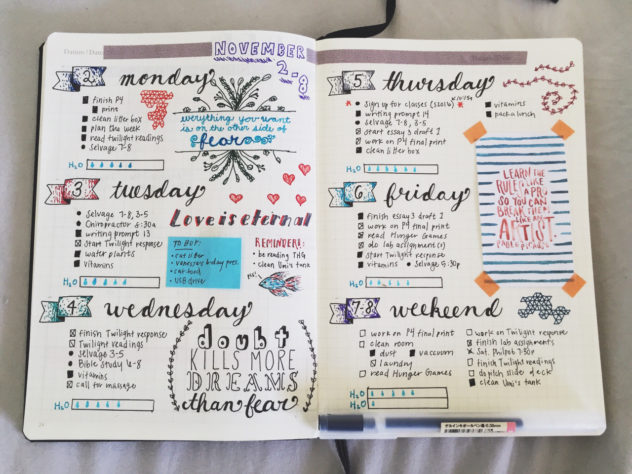 NOVEMBER
2-8
2
monday
finish P4
print
clean litter box
plan the week
read twilight readings
Selvage 7-8
H2O
everything you want
is on the other side of
fear
3
tuesday
Selvage 7-8, 3-5
Chiropractor 6:30a
writing prompt 13
Start Twilight response
water plants
vitamins
H2O
Love is eternal
TO BUY:
cat litter
vanessa's b-day pres.
cat food
USB drive
REMINDERS:
be reading THG
clean Uni's tank
4
wednesday
finish Twilight response
Twilight readings
Selvage 3-5
Bible Study 6-8
vitamins
call for massage
H2O
doubt
KILLS MORE
DREAMS
than fear
5
thursday
Sign up for classes
writing prompt 14
Selvage 7-8, 3-5
start essay 3 draft 2
work on P4 final print
clean litter box
vitamins
pack a lunch
H2O
6
friday
finish essay 3 draft 2
work on P4 final print
read Hunger Games
do lab assignment(s)
start Twilight response
vitamins
Selvage 5:30p
H2O
LEARN THE
RULES LIKE
A PRO,
SO YOU CAN
BREAK THEM
LIKE AN
ARTIST.
PABLO PICASSO
7-8
weekend
work on P4 final print
clean room
dust
vacuum
laundry
read Hunger Games
work on Twilight response
finish lab assignments
Sat. Philpob 7:30p
finish Twilight readings
dopitch slide deck
clean Uni's tank
H2O
H2O